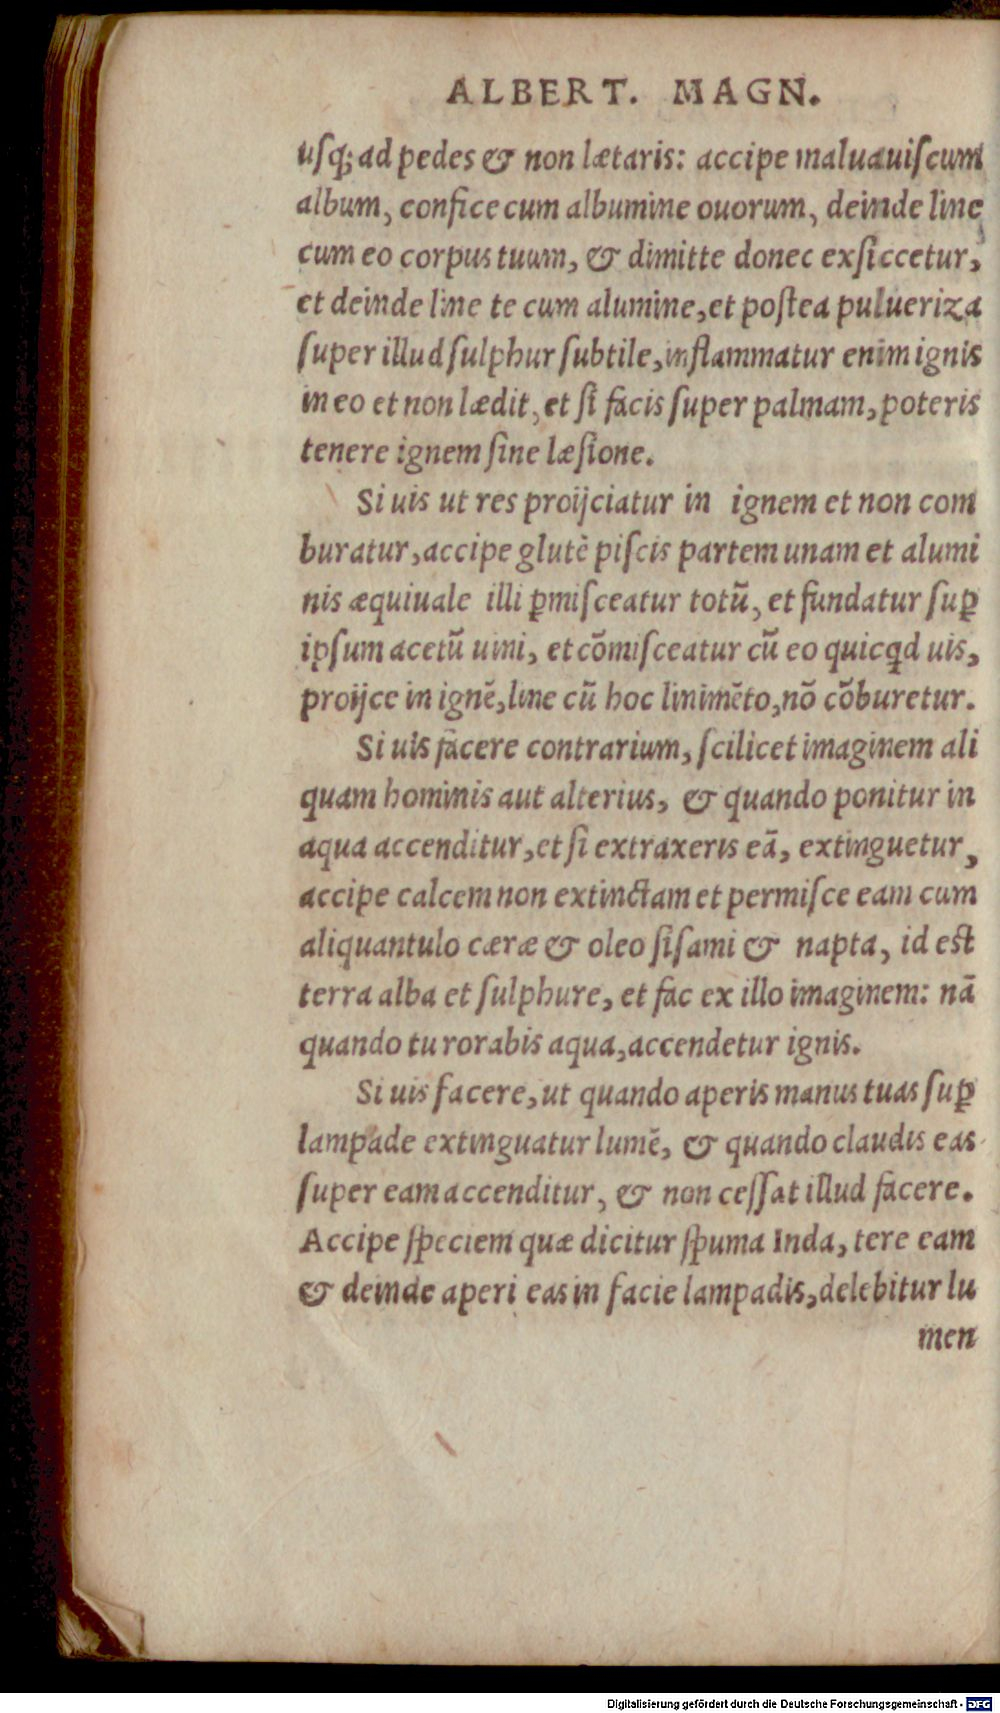 ALBERT. MAGN.
uſq; ad pedes & non lætaris: accipe maluauiſcum
album, confice cum albumine ouorum, deinde line
cum eo corpus tuum, & dimitte donec exſiccetur,
et deinde line te cum alumine, et poſtea pulueriza
ſuper illud ſulphur ſubtile, inflammatur enim ignis
in eo et non lædit, et ſi facis ſuper palmam, poteris
tenere ignem ſine læſione.
Si uis ut res proijciatur in ignem et non com
buratur, accipe glutē piſcis partem unam et alumi
nis æquiuale illi ꝑmiſceatur totū, et fundatur ſuꝑ
ipſum acetū uini, et cōmiſceatur cū eo quicꝗd uis,
proijce in ignē, line cū hoc linimēto, nō cōburetur.
Si uis facere contrarium, ſcilicet imaginem ali
quam hominis aut alterius, & quando ponitur in
aqua accenditur, et ſi extraxeris eā, extinguetur,
accipe calcem non extinctam et permiſce eam cum
aliquantulo cæræ & oleo ſiſami & napta, id est
terra alba et ſulphure, et fac ex illo imaginem: nā
quando tu rorabis aqua, accendetur ignis.
Si uis facere, ut quando aperis manus tuas ſuꝑ
lampade extinguatur lumē, & quando claudis eas
ſuper eam accenditur, & non ceſſat illud facere.
Accipe ſpeciem quæ dicitur ſpuma Inda, tere eam
& deinde aperi eas in facie lampadis, delebitur lu
men
Digitalisierung gefördert durch die Deutsche Forschungsgemeinschaft - DFG